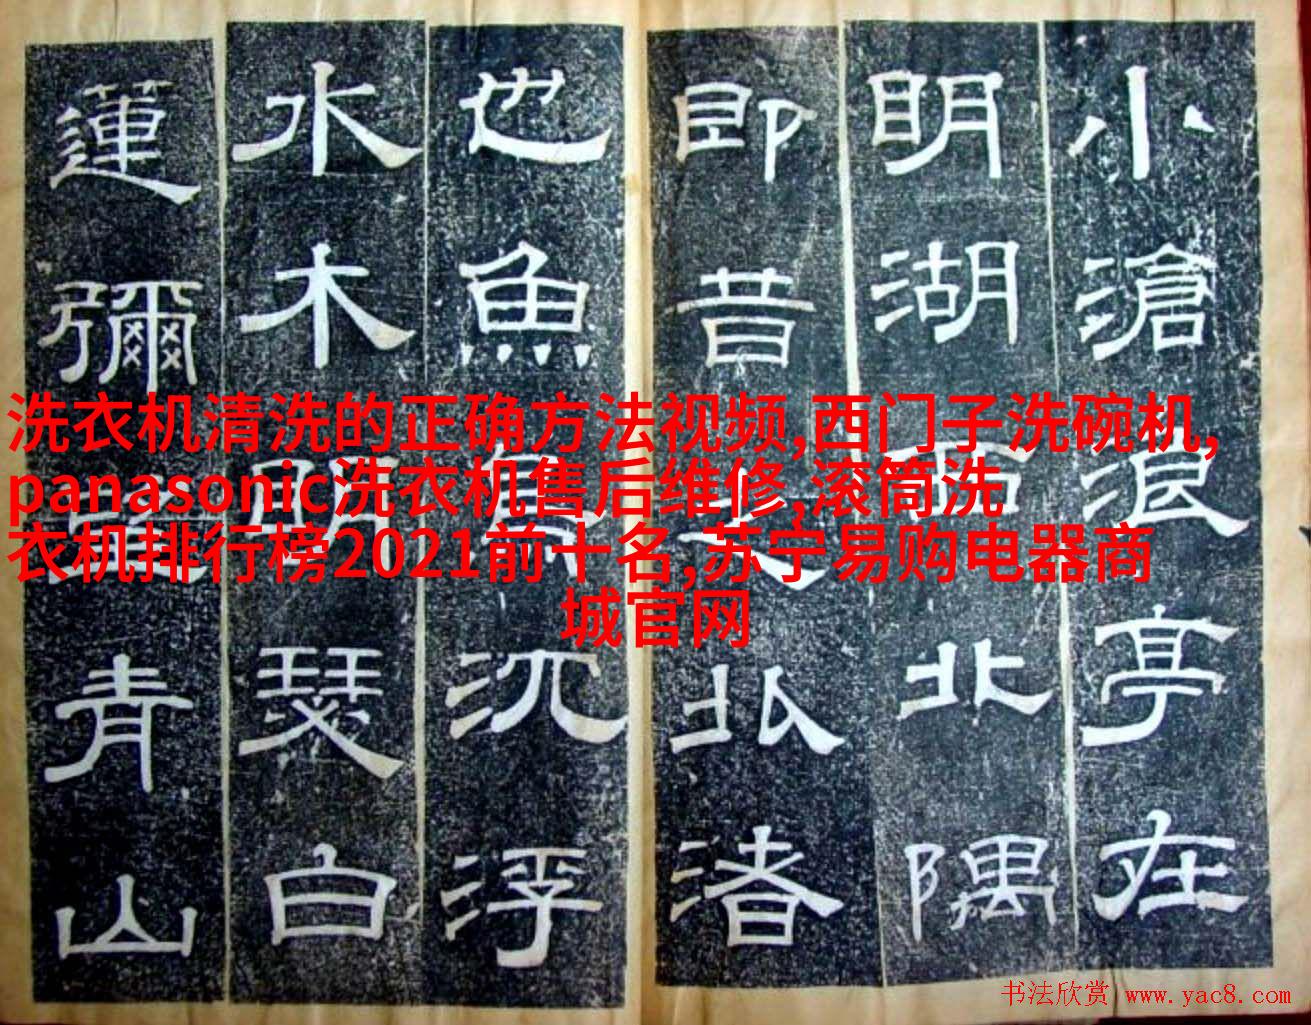 小滄浪亭在
明湖西北隅
即昔之北渚
也魚鳥沉浮
水木明瑟白
蓮彌望青山
洗衣机清洗的正确方法视频,西门子洗碗机,
panasonic洗衣机售后维修,滚筒洗
衣机排行榜2021前十名,苏宁易购电器商
城官网
书法欣赏 www.yac8.com